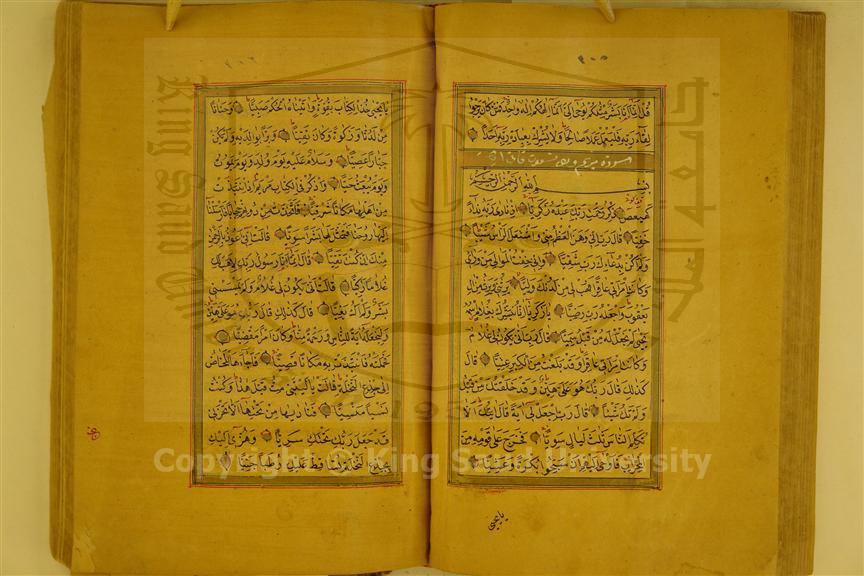 ٣٠٥
قل انما انا بشر مثلكم يوحى الي انما الهكم اله واحد فمن كان يرجوا
لقاء ربه فليعمل عملا صالحا ولا يشرك بعبادة ربه احدا
سورة مريم وهي تسعون
بسم الله الرحمن الرحيم
كهيعص ذكر رحمت ربك عبده زكريا اذ نادى ربه نداء
خفيا قال رب اني وهن العظم مني واشتعل الرأس شيبا
ولم اكن بدعائك رب شقيا واني خفت الموالي من ورائي
وكانت امراتي عاقرا فهب لي من لدنك وليا يرثني ويرث من ال
يعقوب واجعله رب رضيا يا زكريا انا نبشرك بغلام اسمه
يحيى لم نجعل له من قبل سميا قال رب انى يكون لي غلام
وكانت امراتي عاقرا وقد بلغت من الكبر عتيا قال
كذلك قال ربك هو علي هين وقد خلقتك من قبل
ولم تك شيئا قال رب اجعل لي اية قال ايتك الا
تكلم الناس ثلث ليال سويا فخرج على قومه من
المحراب فاوحى اليهم ان سبحوا بكرة وعشيا
يا يحيى
يا يحيى خذ الكتاب بقوة واتيناه الحكم صبيا وحنانا
من لدنا وزكوة وكان تقيا وبرا بوالديه ولم يكن
جبارا عصيا وسلام عليه يوم ولد ويوم يموت
ويوم يبعث حيا واذكر في الكتاب مريم اذ انتبذت
من اهلها مكانا شرقيا فاتخذت من دونهم حجابا فارسلنا
اليها روحنا فتمثل لها بشرا سويا قالت اني اعوذ بالرحمن
منك ان كنت تقيا قال انما انا رسول ربك لاهب لك
غلاما زكيا قالت انى يكون لي غلام ولم يمسسني
بشر ولم اك بغيا قال كذلك قال ربك هو علي هين
ولنجعله اية للناس ورحمة منا وكان امرا مقضيا
فحملته فانتبذت به مكانا قصيا فاجاءها المخاض
الى جذع النخلة قالت يا ليتني مت قبل هذا وكنت
نسيا منسيا فناداها من تحتها الا تحزني
قد جعل ربك تحتك سريا وهزي اليك
بجذع النخلة تساقط عليك رطبا جنيا
King Saud University
جامعة الملك
195
Copyright © King Saud University